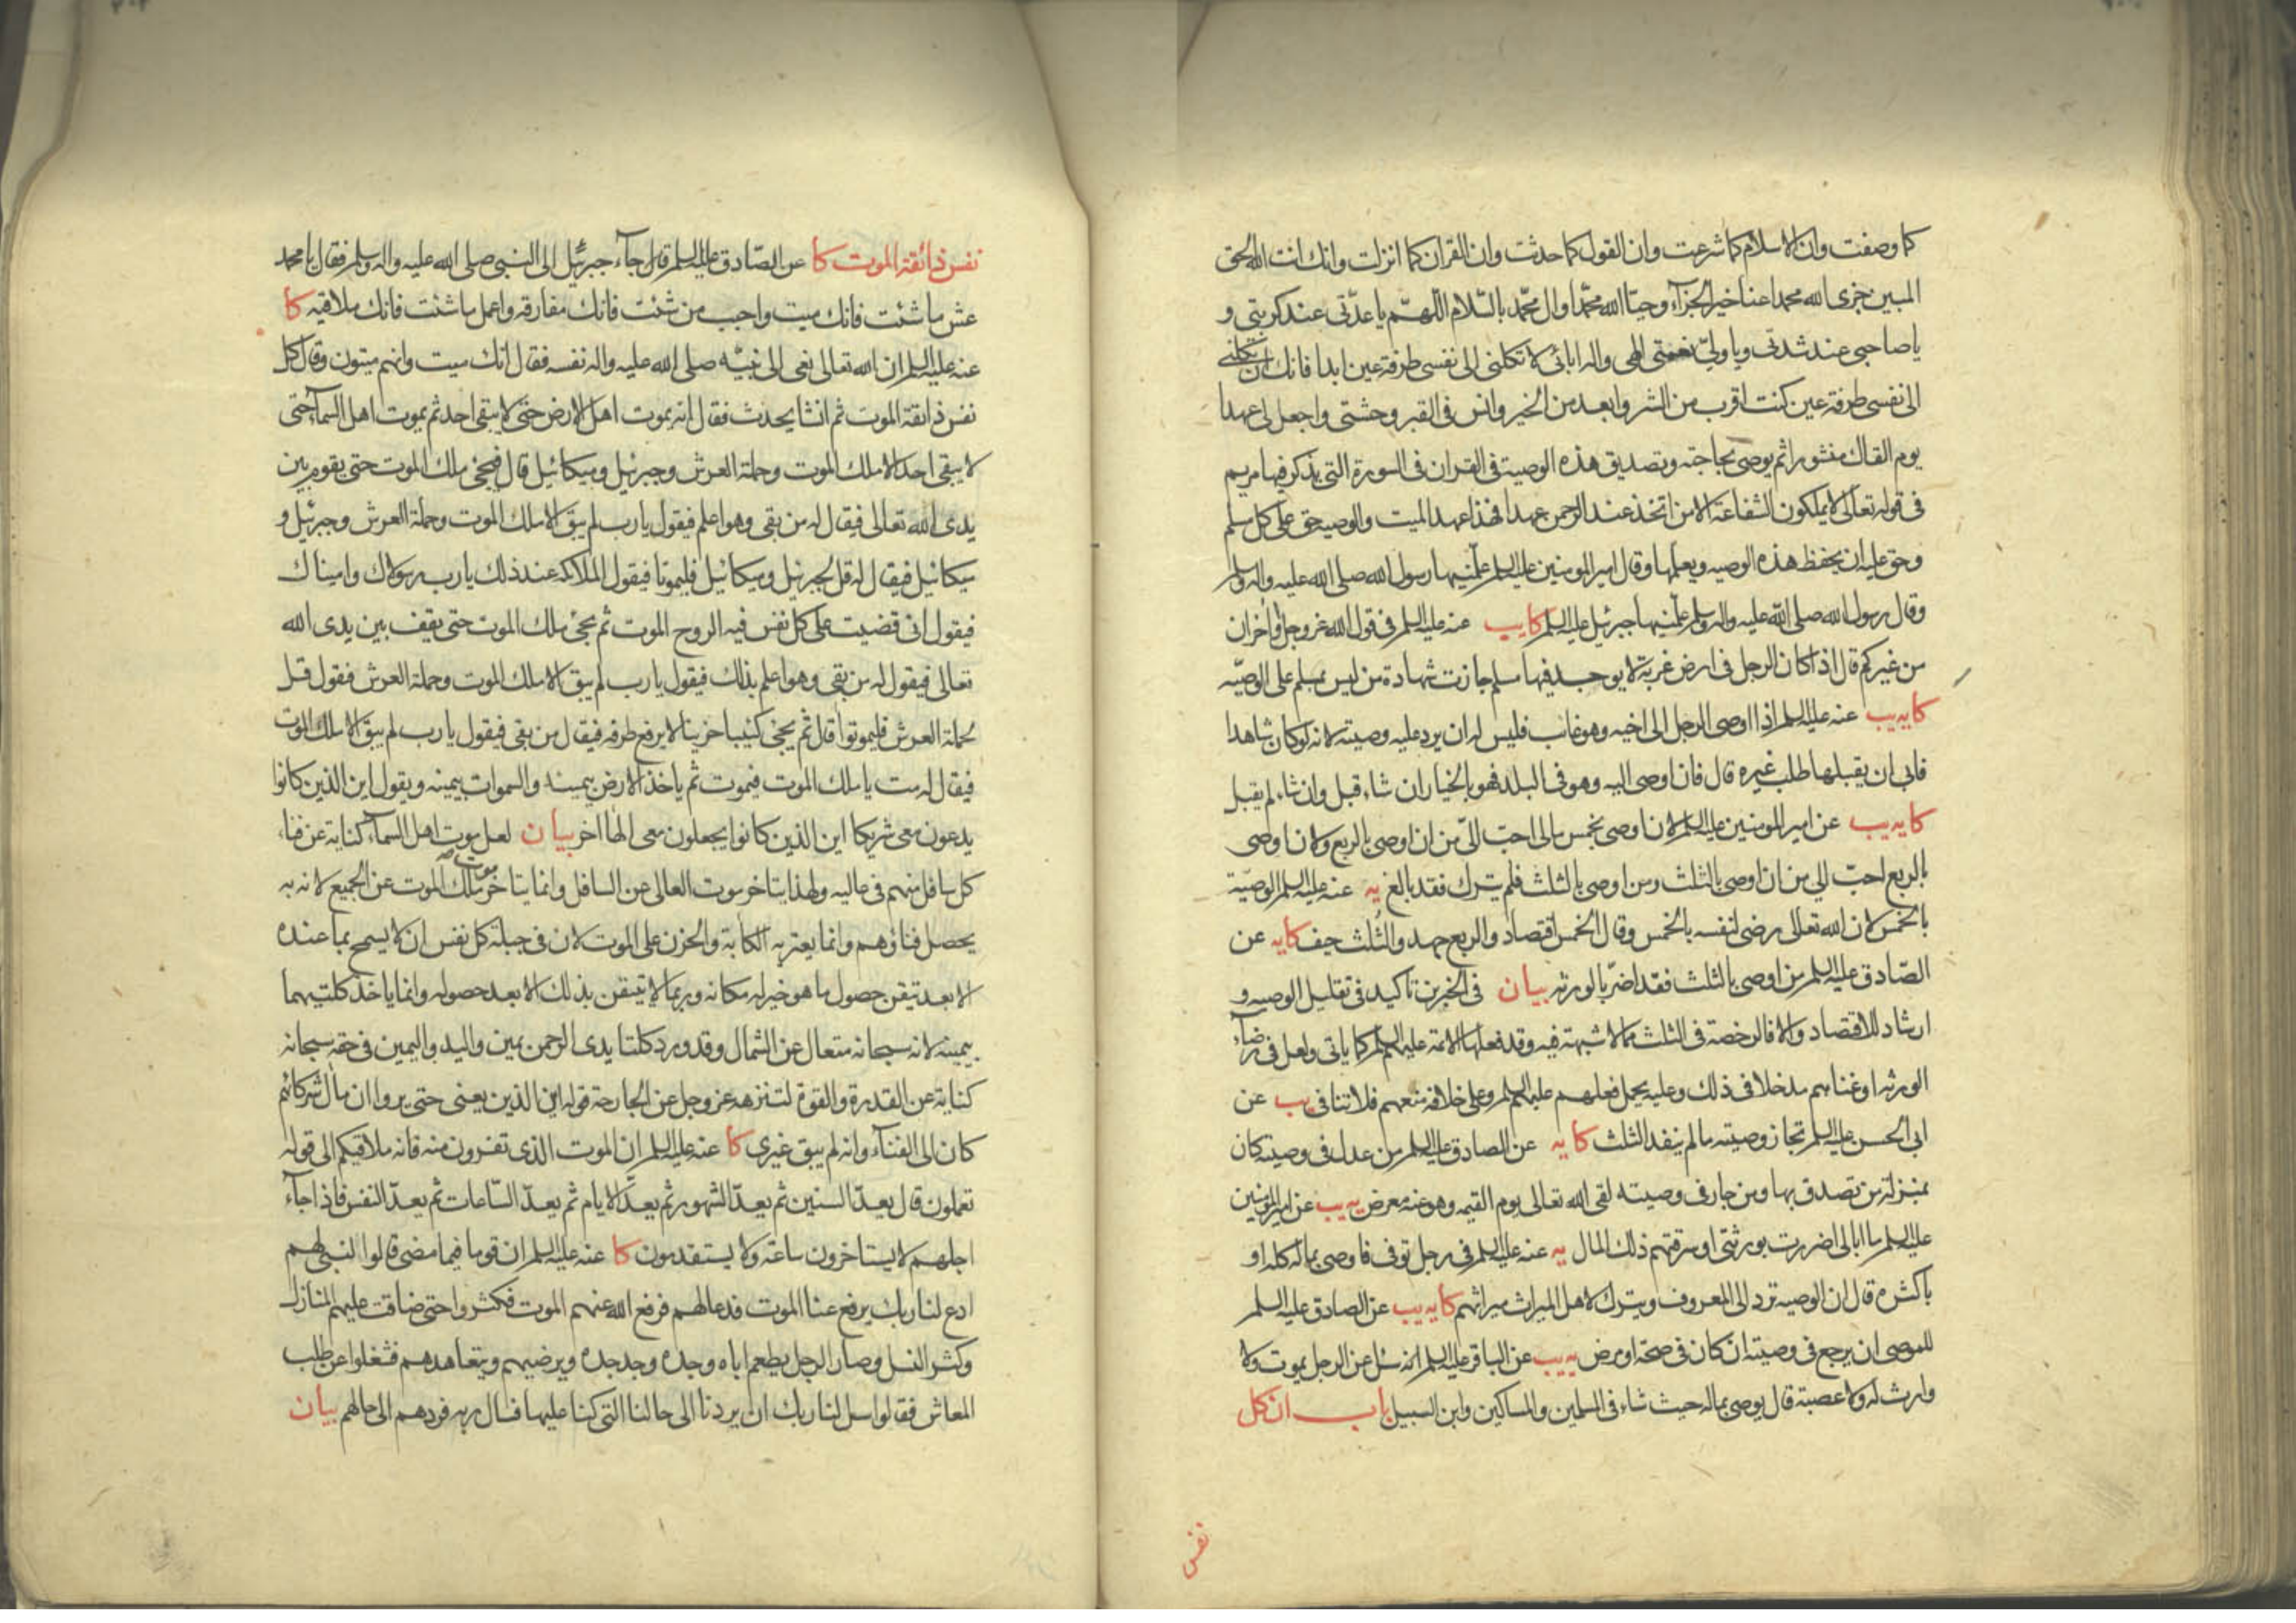 كما وصفت وان الاسلام كما شرعت وان القول كما حدثت وان القران كما انزلت وانك انت الله الحق
المبين جزى الله محمدا عنا خير الجزآء وحيّا الله محمّدا وال محمّد بالسّلام اللّهمّ يا عدّتى عند كربتى و
يا صاحبى عند شدتى ويا ولىّ نعمتى الهى واله ابائى لا تكلنى الى نفسى طرفة عين ابدا فانك ان تكلنى
الى نفسى طرفة عين كنت اقرب من الشر وابعد من الخير وانس فى القبر وحشتى واجعل لى عهدا
يوم القاك منشورا ثم يوصى بحاجته وتصديق هذه الوصية فى القران فى السورة التى يذكر فيها مريم
فى قوله تعالى لا يملكون الشفاعة الا من اتخذ عند الرحمن عهدا فهذا عهد الميت والوصيه حق على كل مسلم
وحق عليه ان يحفظ هذه الوصيه ويعلمها وقال امير المومنين عليه السلم علّمنيها رسول الله صلى الله عليه واله وسلم
وقال رسول الله صلى الله عليه واله وسلم علّمنيها جبرئيل عليه السلم كا يب عنه عليه السلم فى قول الله عز وجل او اخران
من غيركم قال اذا كان الرجل فى ارض غربة لا يوجد فيها مسلم جازت شهادة من ليس بمسلم على الوصيّه
كا يه يب عنه عليه السلم اذا اوصى الرجل الى اخيه وهو غايب فليس له ان يرد عليه وصيته لانه لو كان شاهدا
فابى ان يقبلها طلب غيره قال فان اوصى اليه وهو فى البلد فهو بالخيار ان شاء قبل وان شاء لم يقبل
كا يه يب عن امير المومنين عليه السلم لان اوصى بخمس مالى احبّ الىّ من ان اوصى بالربع ولان اوصى
بالربع احبّ الى من ان اوصى بالثلث ومن اوصى بالثلث فلم يترك فقد بالغ يه عنه عليه السلم الوصيّة
بالخمس لان الله تعالى رضى لنفسه بالخمس وقال الخمس اقتصاد والربع جهد والثّلث حيف كا يه عن
الصّادق عليه السلم من اوصى بالثلث فقد اضرّ بالورثه بيان فى الخبرين تاكيد فى تقليل الوصيه و
ارشاد للاقتصاد والا فالرخصة فى الثلث مما لا شبهة فيه وقد فعلها الائمة عليهم السلم كما ياتى ولعل فى رضآء
الورثه او غناهم مدخلا فى ذلك وعليه يحمل فعلهم عليهم السلم وعلى خلافه منعهم فلا تنافى يب عن
ابى الحسن عليه السلم تجاز وصيته ما لم ينفد الثلث كا يه عن الصادق عليه السلم من عدل فى وصيته كان
بمنزلة من تصدق بها ومن جار فى وصيته لقى الله تعالى يوم القيمه وهو عنه معرض يه يب عن امير المؤمنين
عليه السلم ما ابالى اضررت بورثتى او سرقتهم ذلك المال يه عنه عليه السلم فى رجل توفى فاوصى بماله كله او
باكثره قال ان الوصيه ترد الى المعروف ويترك لاهل الميراث ميراثهم كا يه يب عن الصادق عليه السلم
للموصى ان يرجع فى وصيته ان كان فى صحة او مرض يه يب عن الباقر عليه السلم انه سئل عن الرجل يموت ولا
وارث له ولا عصبة قال يوصى بماله حيث شاء فى المسلمين والمساكين وابن السبيل باب ان كل
نفس
نفس ذائقة الموت كا عن الصّادق عليه السلم قال جآء جبرئيل الى النبى صلى الله عليه واله وسلم فقال يا محمد
عش ما شئت فانك ميت واحبب من شئت فانك مفارقه واعمل ما شئت فانك ملاقيه كا
عنه عليه السلم ان الله تعالى نعى الى نبيّه صلى الله عليه واله نفسه فقال انك ميت وانهم ميتون وقال كل
نفس ذائقة الموت ثم انشا يحدث فقال انه يموت اهل الارض حتى لا يبقى احد ثم يموت اهل السمآء حتى
لا يبقى احد الا ملك الموت وحملة العرش وجبرئيل وميكائيل قال فيجئ ملك الموت حتى يقوم بين
يدى الله تعالى فيقال له من بقى وهو اعلم فيقول يا رب لم يبق الا ملك الموت وحملة العرش وجبرئيل و
ميكائيل فيقال له قل لجبرئيل وميكائيل فليموتا فيقول الملائكة عند ذلك يا رب رسولاك واميناك
فيقول انى قضيت على كل نفس فيه الروح الموت ثم يجئ ملك الموت حتى يقف بين يدى الله
تعالى فيقول له من بقى وهو اعلم بذلك فيقول يا رب لم يبق الا ملك الموت وحملة العرش فقول قل
لحملة العرش فليموتوا قال ثم يجئ كئيبا حزينا لا يرفع طرفه فيقال من بقى فيقول يا رب لم يبق الا ملك الموت
فيقال له مت يا ملك الموت فيموت ثم ياخذ الارض بيمينه والسموات بيمينه ويقول اين الذين كانوا
يدعون معى شريكا اين الذين كانوا يجعلون معى الها اخر بيان لعل موت اهل السمآء كناية عن فناء
كل سافل منهم فى عاليه ولهذا يتاخر موت العالى عن السافل وانما يتاخر موت ملك الموت عن الجميع لانه به
يحصل فناؤهم وانما يعتريه الكآبة والحزن على الموت لان فى جبلة كل نفس ان لا يسمح بما عنده
الا بعد تيقن حصول ما هو خير له مكانه وربما لا يتيقن بذلك الا بعد حصوله وانما ياخذ كلتيهما
بيمينه لانه سبحانه متعال عن الشمال وقد ورد كلتا يدى الرحمن يمين واليد واليمين فى حقه سبحانه
كناية عن القدرة والقوة لتنزهه عز وجل عن الجارحة قوله اين الذين يعنى حتى يروا ان مآل شركائهم
كان الى الفنآء وانه لم يبق غيرى كا عنه عليه السلم ان الموت الذى تفرون منه فانه ملاقيكم الى قوله
تعملون قال يعدّ السنين ثم يعدّ الشهور ثم يعدّ الايام ثم يعدّ السّاعات ثم يعدّ النفس فاذا جآء
اجلهم لا يستاخرون ساعة ولا يستقدمون كا عنه عليه السلم ان قوما فيما مضى قالوا لنبى لهم
ادع لنا ربك يرفع عنا الموت فدعا لهم فرفع الله عنهم الموت فكثروا حتى ضاقت عليهم المنازل
وكثر النسل وصار الرجل يطعم اباه وجده وجد جده ويرضيهم ويتعاهدهم فشغلوا عن طلب
المعاش فقالوا سل لنا ربك ان يردنا الى حالنا التى كنا عليها فسال ربه فردهم الى حالهم بيان